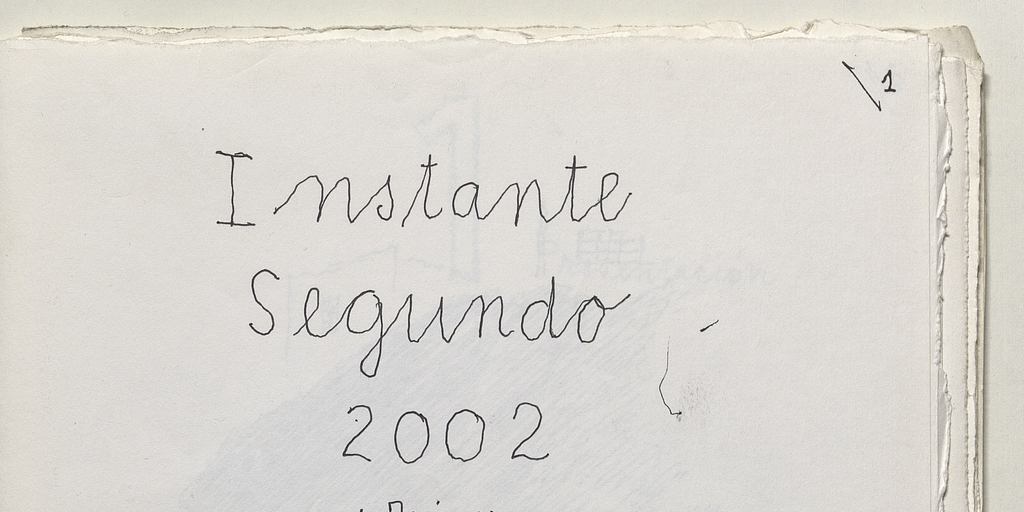 \1
Instante
Segundo
2002